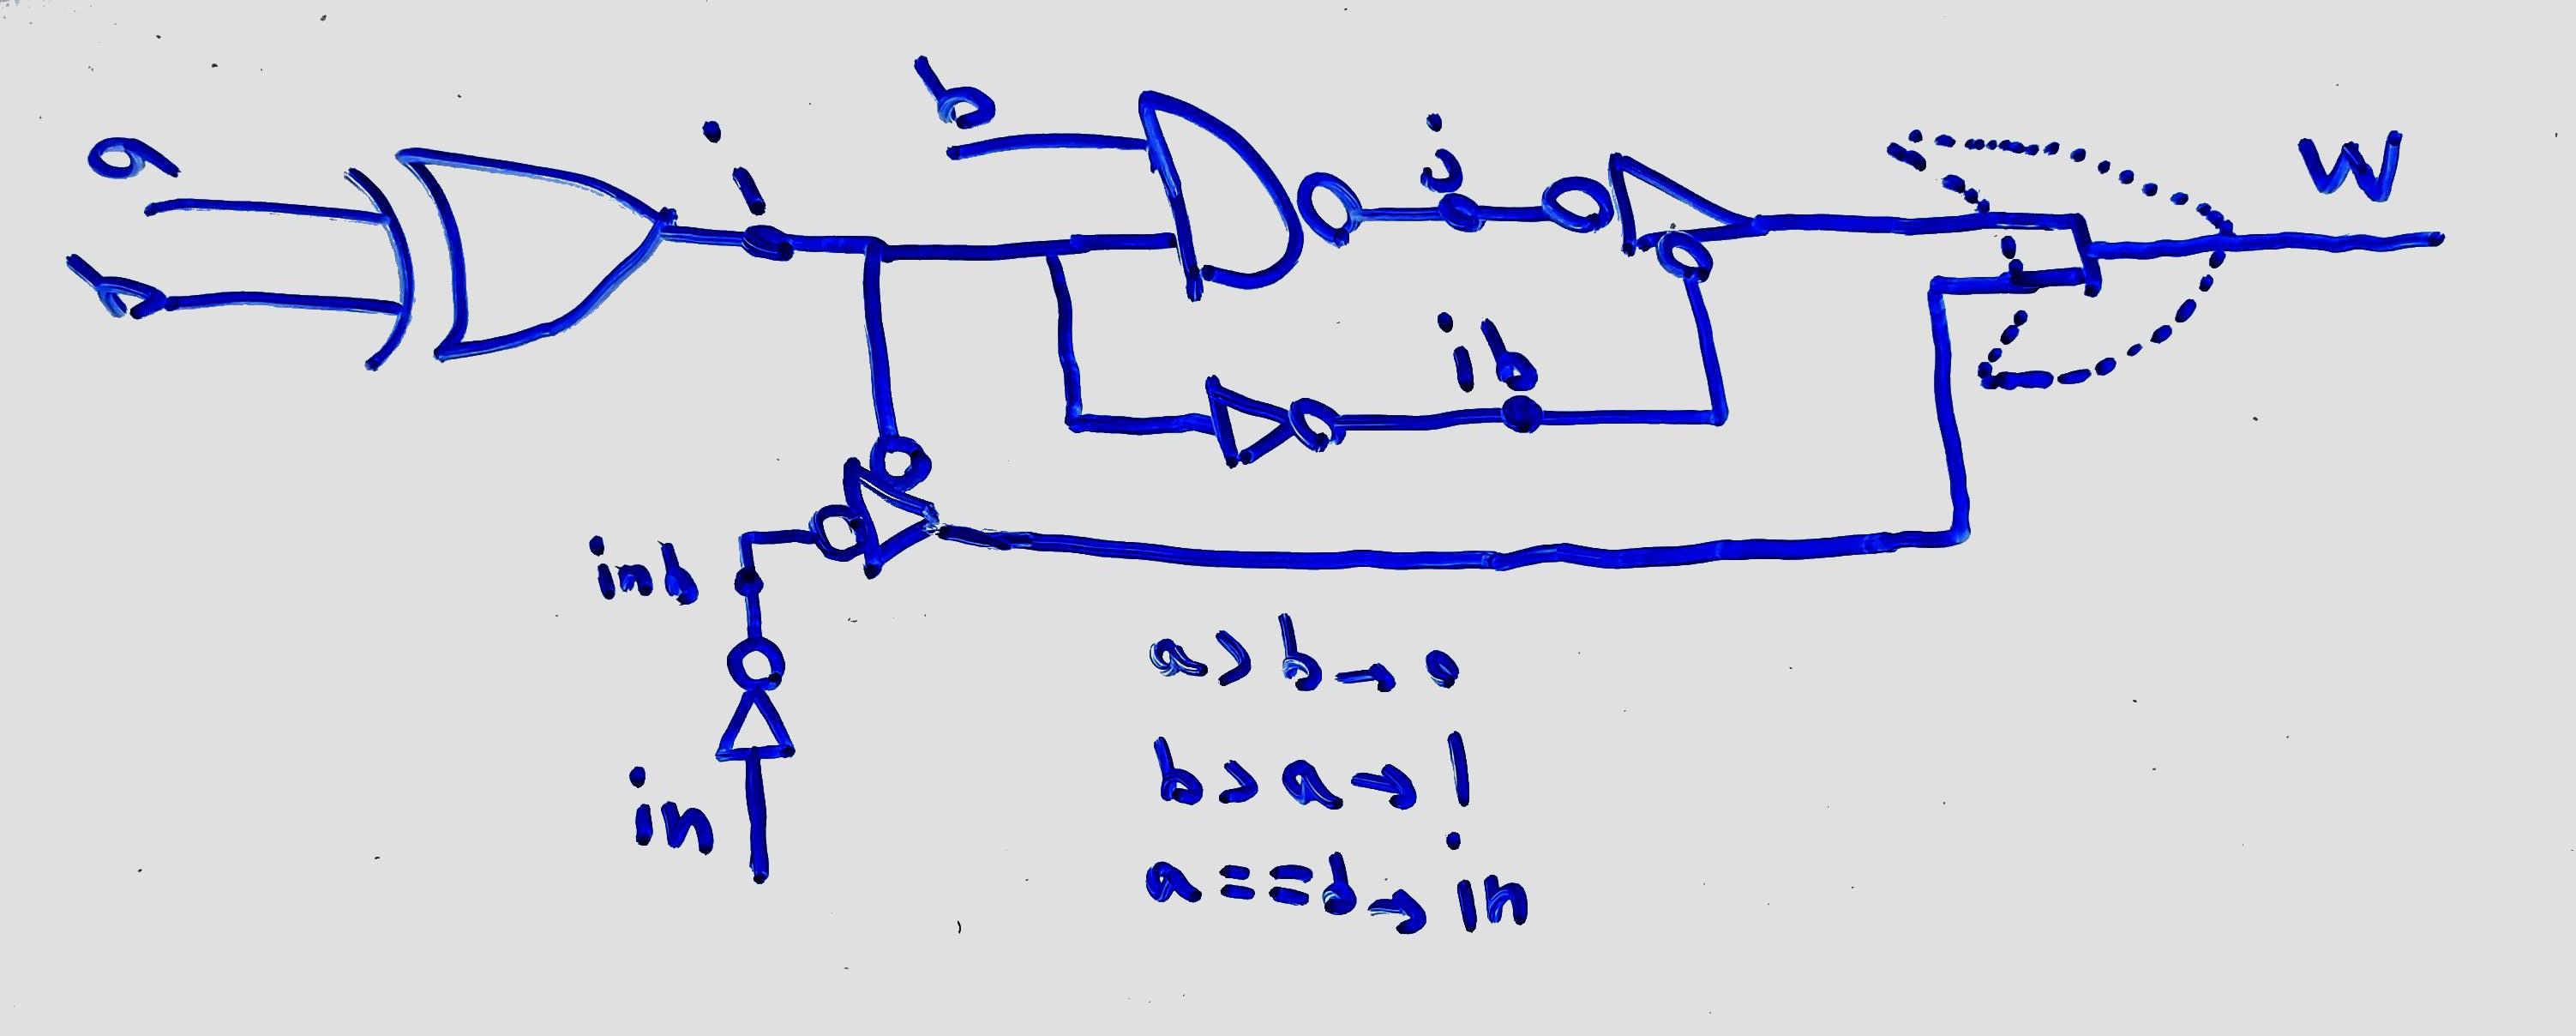 a
b
i
b
j
ib
w
inb
in
a > b → 0
b > a → 1
a == b → in